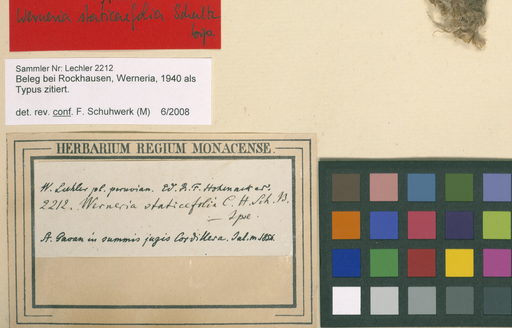 Werneria staticefolia Schultz
Sammler Nr: Lechler 2212
Beleg bei Rockhausen, Werneria, 1940 als
Typus zitiert.
det. rev. conf. F. Schuhwerk (M) 6/2008
HERBARIUM REGIUM MONACENSE.
W. Lechler pl. peruvian. Ed. R. F. Hohenacker.
2212. Werneria staticefolia C. H. Sch. B.
Spe.
A. Pavan in summis jugis Cordillera. Jul. m 1854.